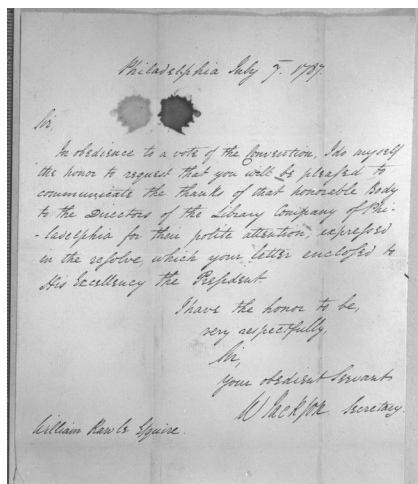 Philadelphia July 7. 1787.
Sir,
In obedience to a vote of the Convention, I do myself
the honor to request that you will be pleased to
communicate the thanks of that honorable Body
to the Directors of the Library Company of Phi-
-ladelphia for their polite attention expressed
in the resolve, which your letter enclosed to
His Excellency the President.
I have the honor to be,
very respectfully,
Sir,
Your obedient Servant
W Jackson Secretary.
William Rawle Esquire.